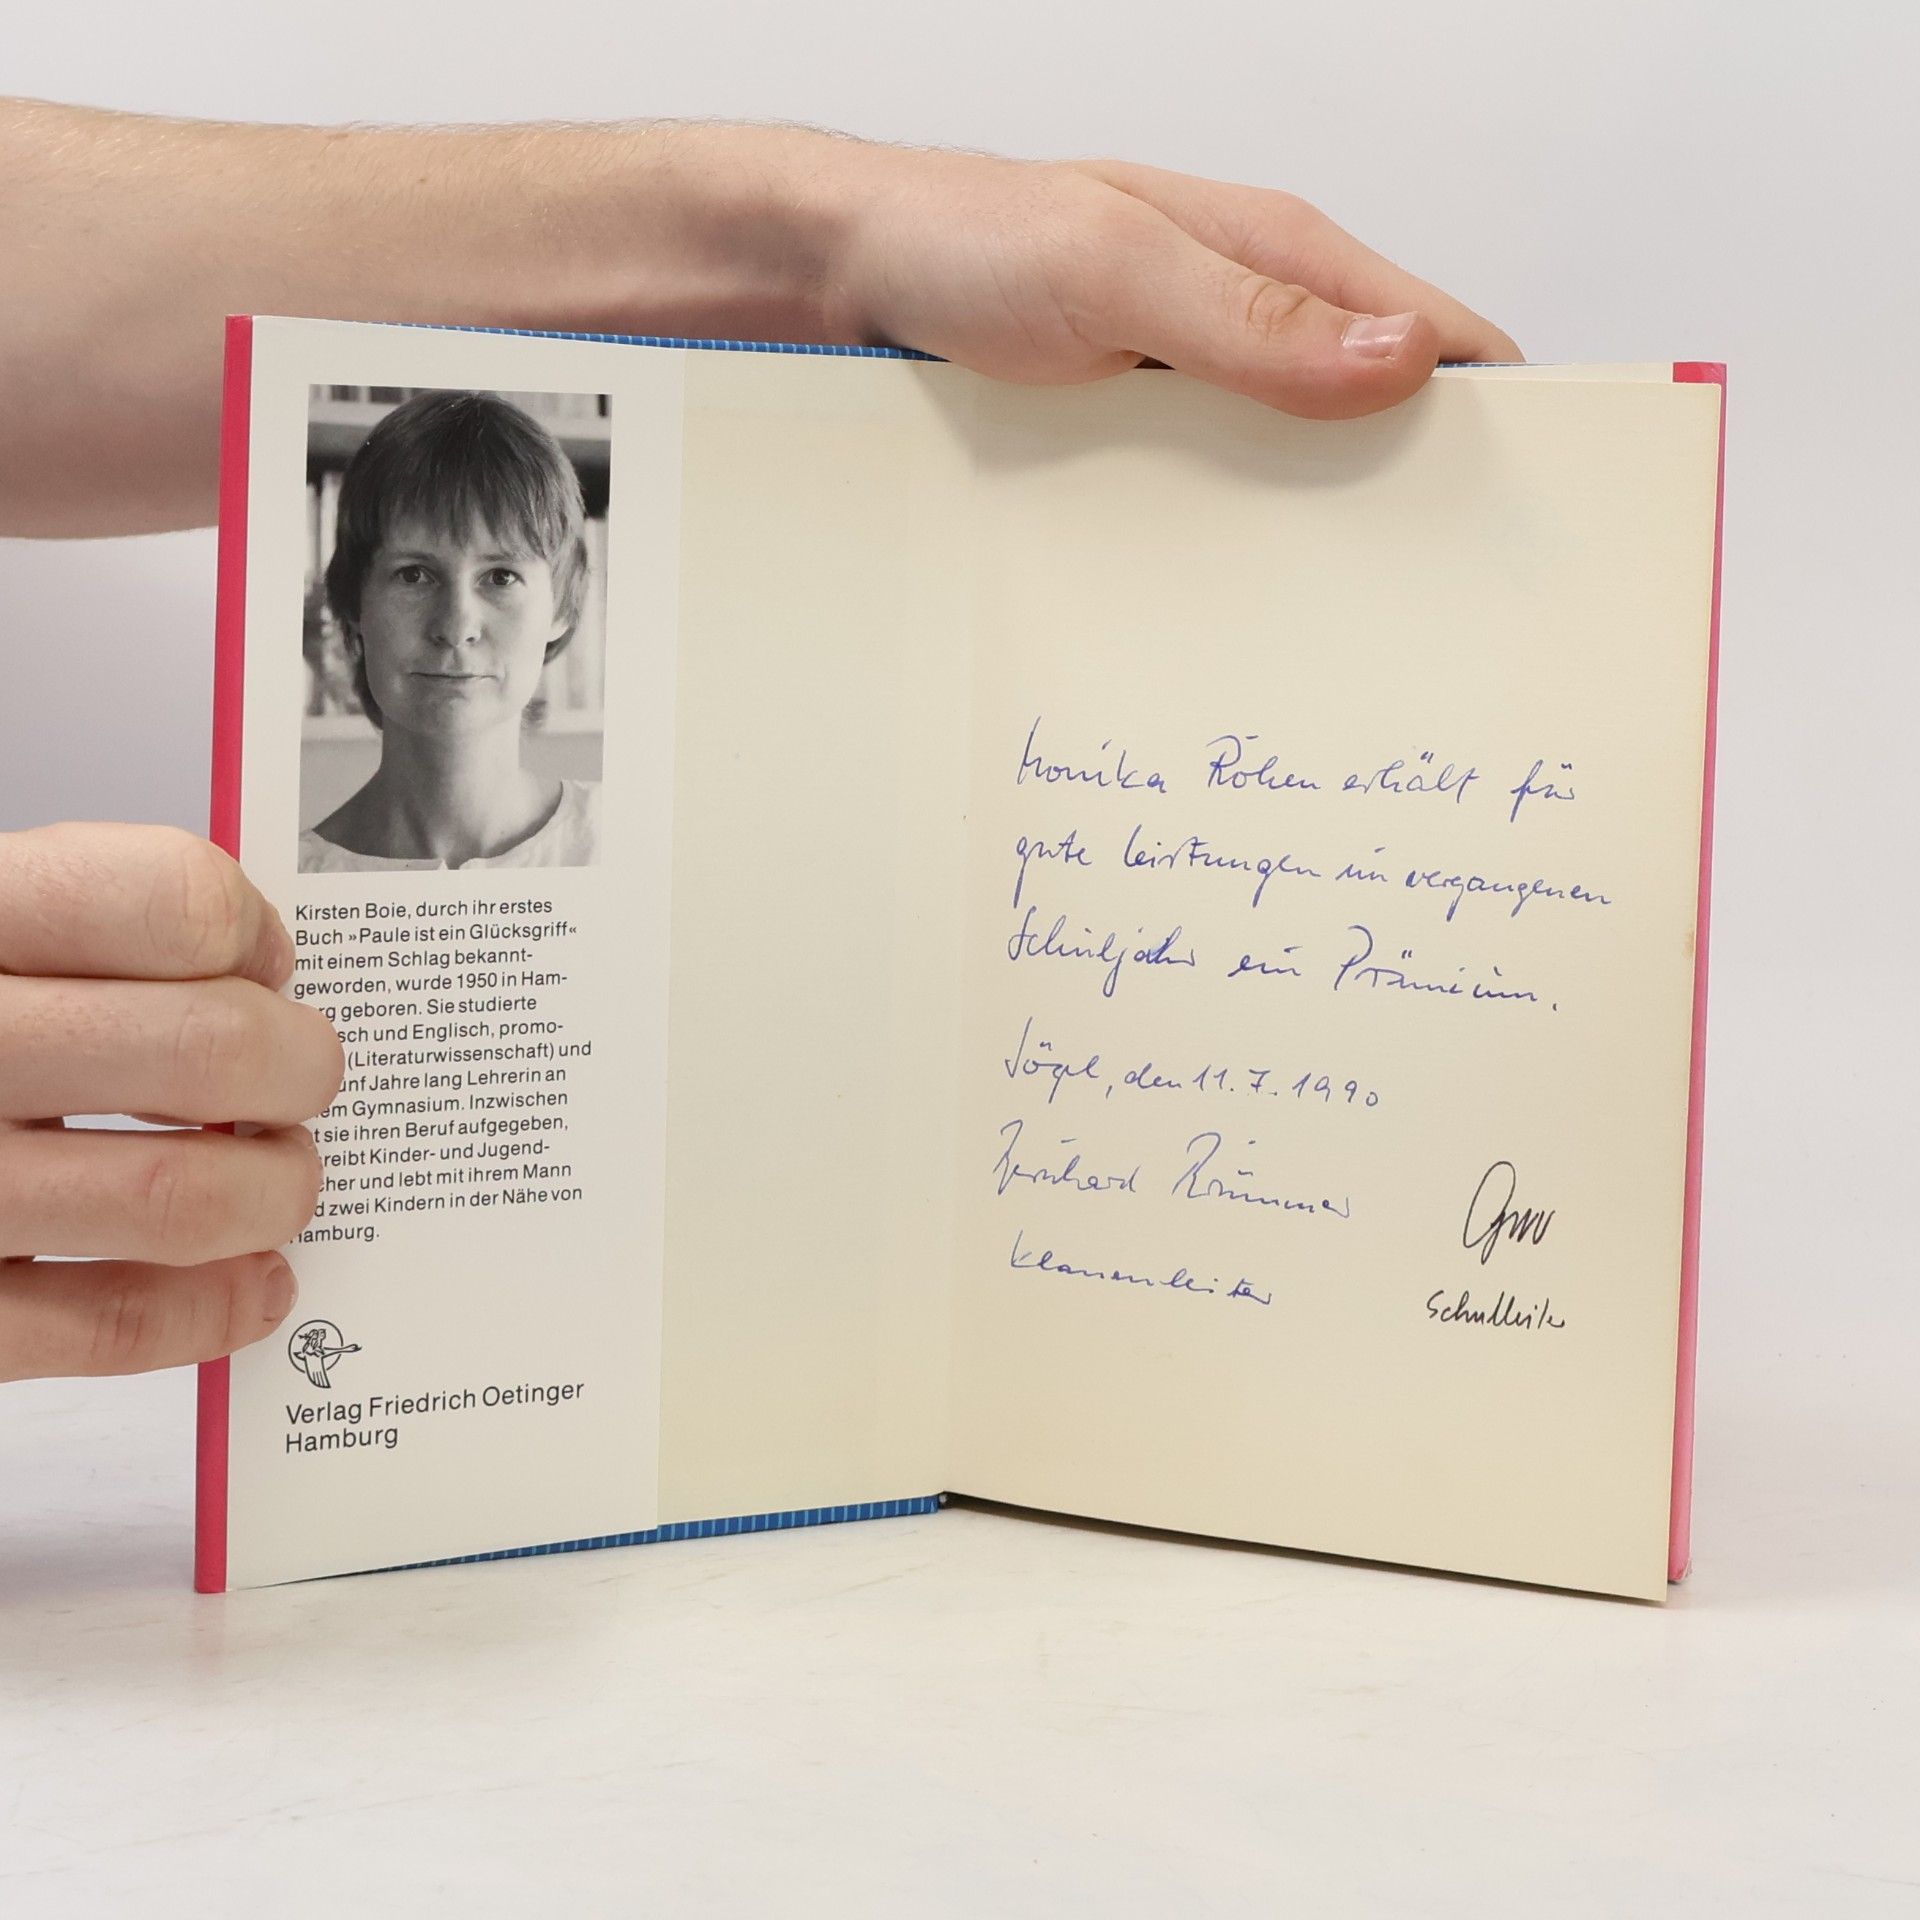 Kirsten Boie, durch ihr erstes
Buch »Paule ist ein Glücksgriff«
mit einem Schlag bekannt-
geworden, wurde 1950 in Ham-
rg geboren. Sie studierte
sch und Englisch, promo-
(Literaturwissenschaft) und
ünf Jahre lang Lehrerin an
em Gymnasium. Inzwischen
t sie ihren Beruf aufgegeben,
reibt Kinder- und Jugend-
cher und lebt mit ihrem Mann
d zwei Kindern in der Nähe von
Hamburg.
Verlag Friedrich Oetinger
Hamburg
Monika erhält für
gute Leistungen im vergangenen
Schuljahr ein Prämium.
Sögel, den 11.7.1990
Bernhard
Klassenleiter
Schulleiter